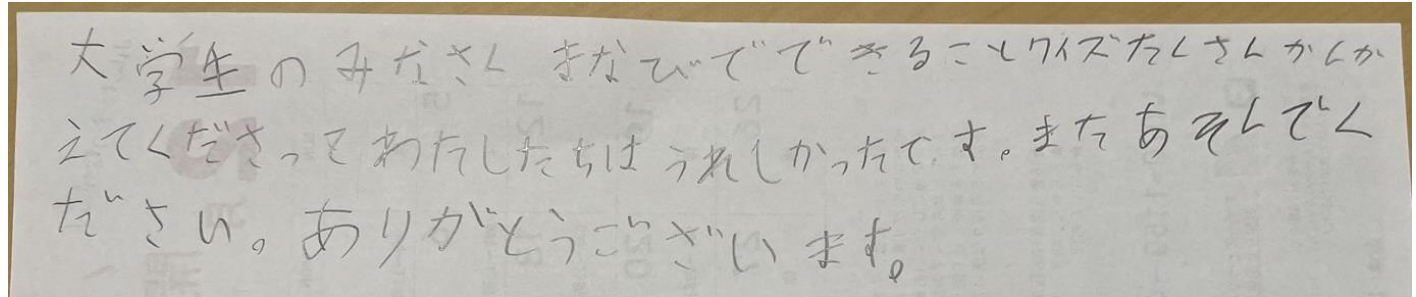 大学生のみなさん まなびでできることクイズたくさんかんが
えてくださってわたしたちはうれしかったです。またあそんでく
ださい。ありがとうございます。